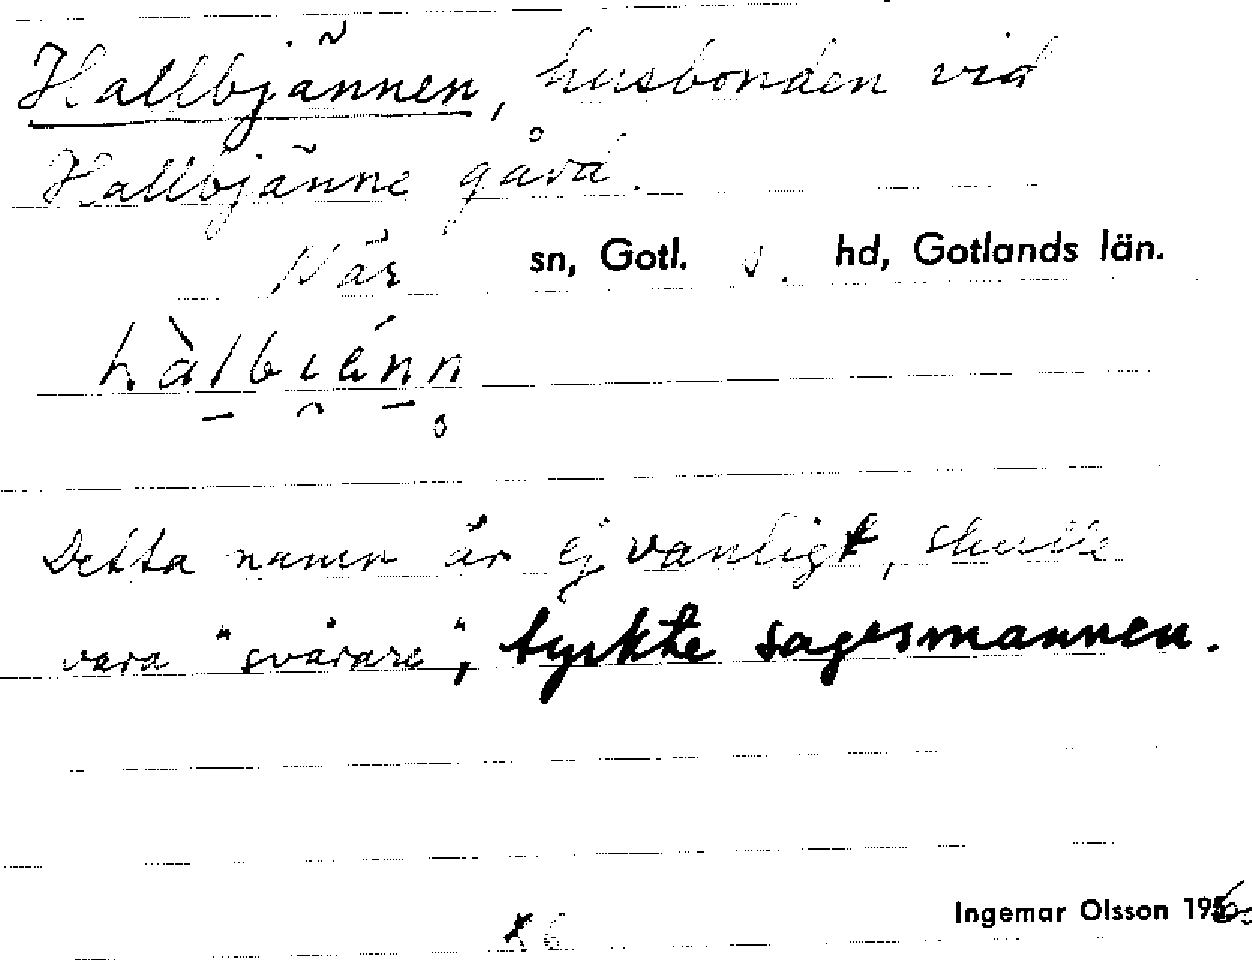 Hallbjännen, husbonden vid
Hallbjänne gård.
När sn, Gotl. s. hd, Gotlands län.
hàlbiánn
Detta namn är ej vanligt, skulle
vara "svårare", tyckte sagesmannen.
Ingemar Olsson 1956.